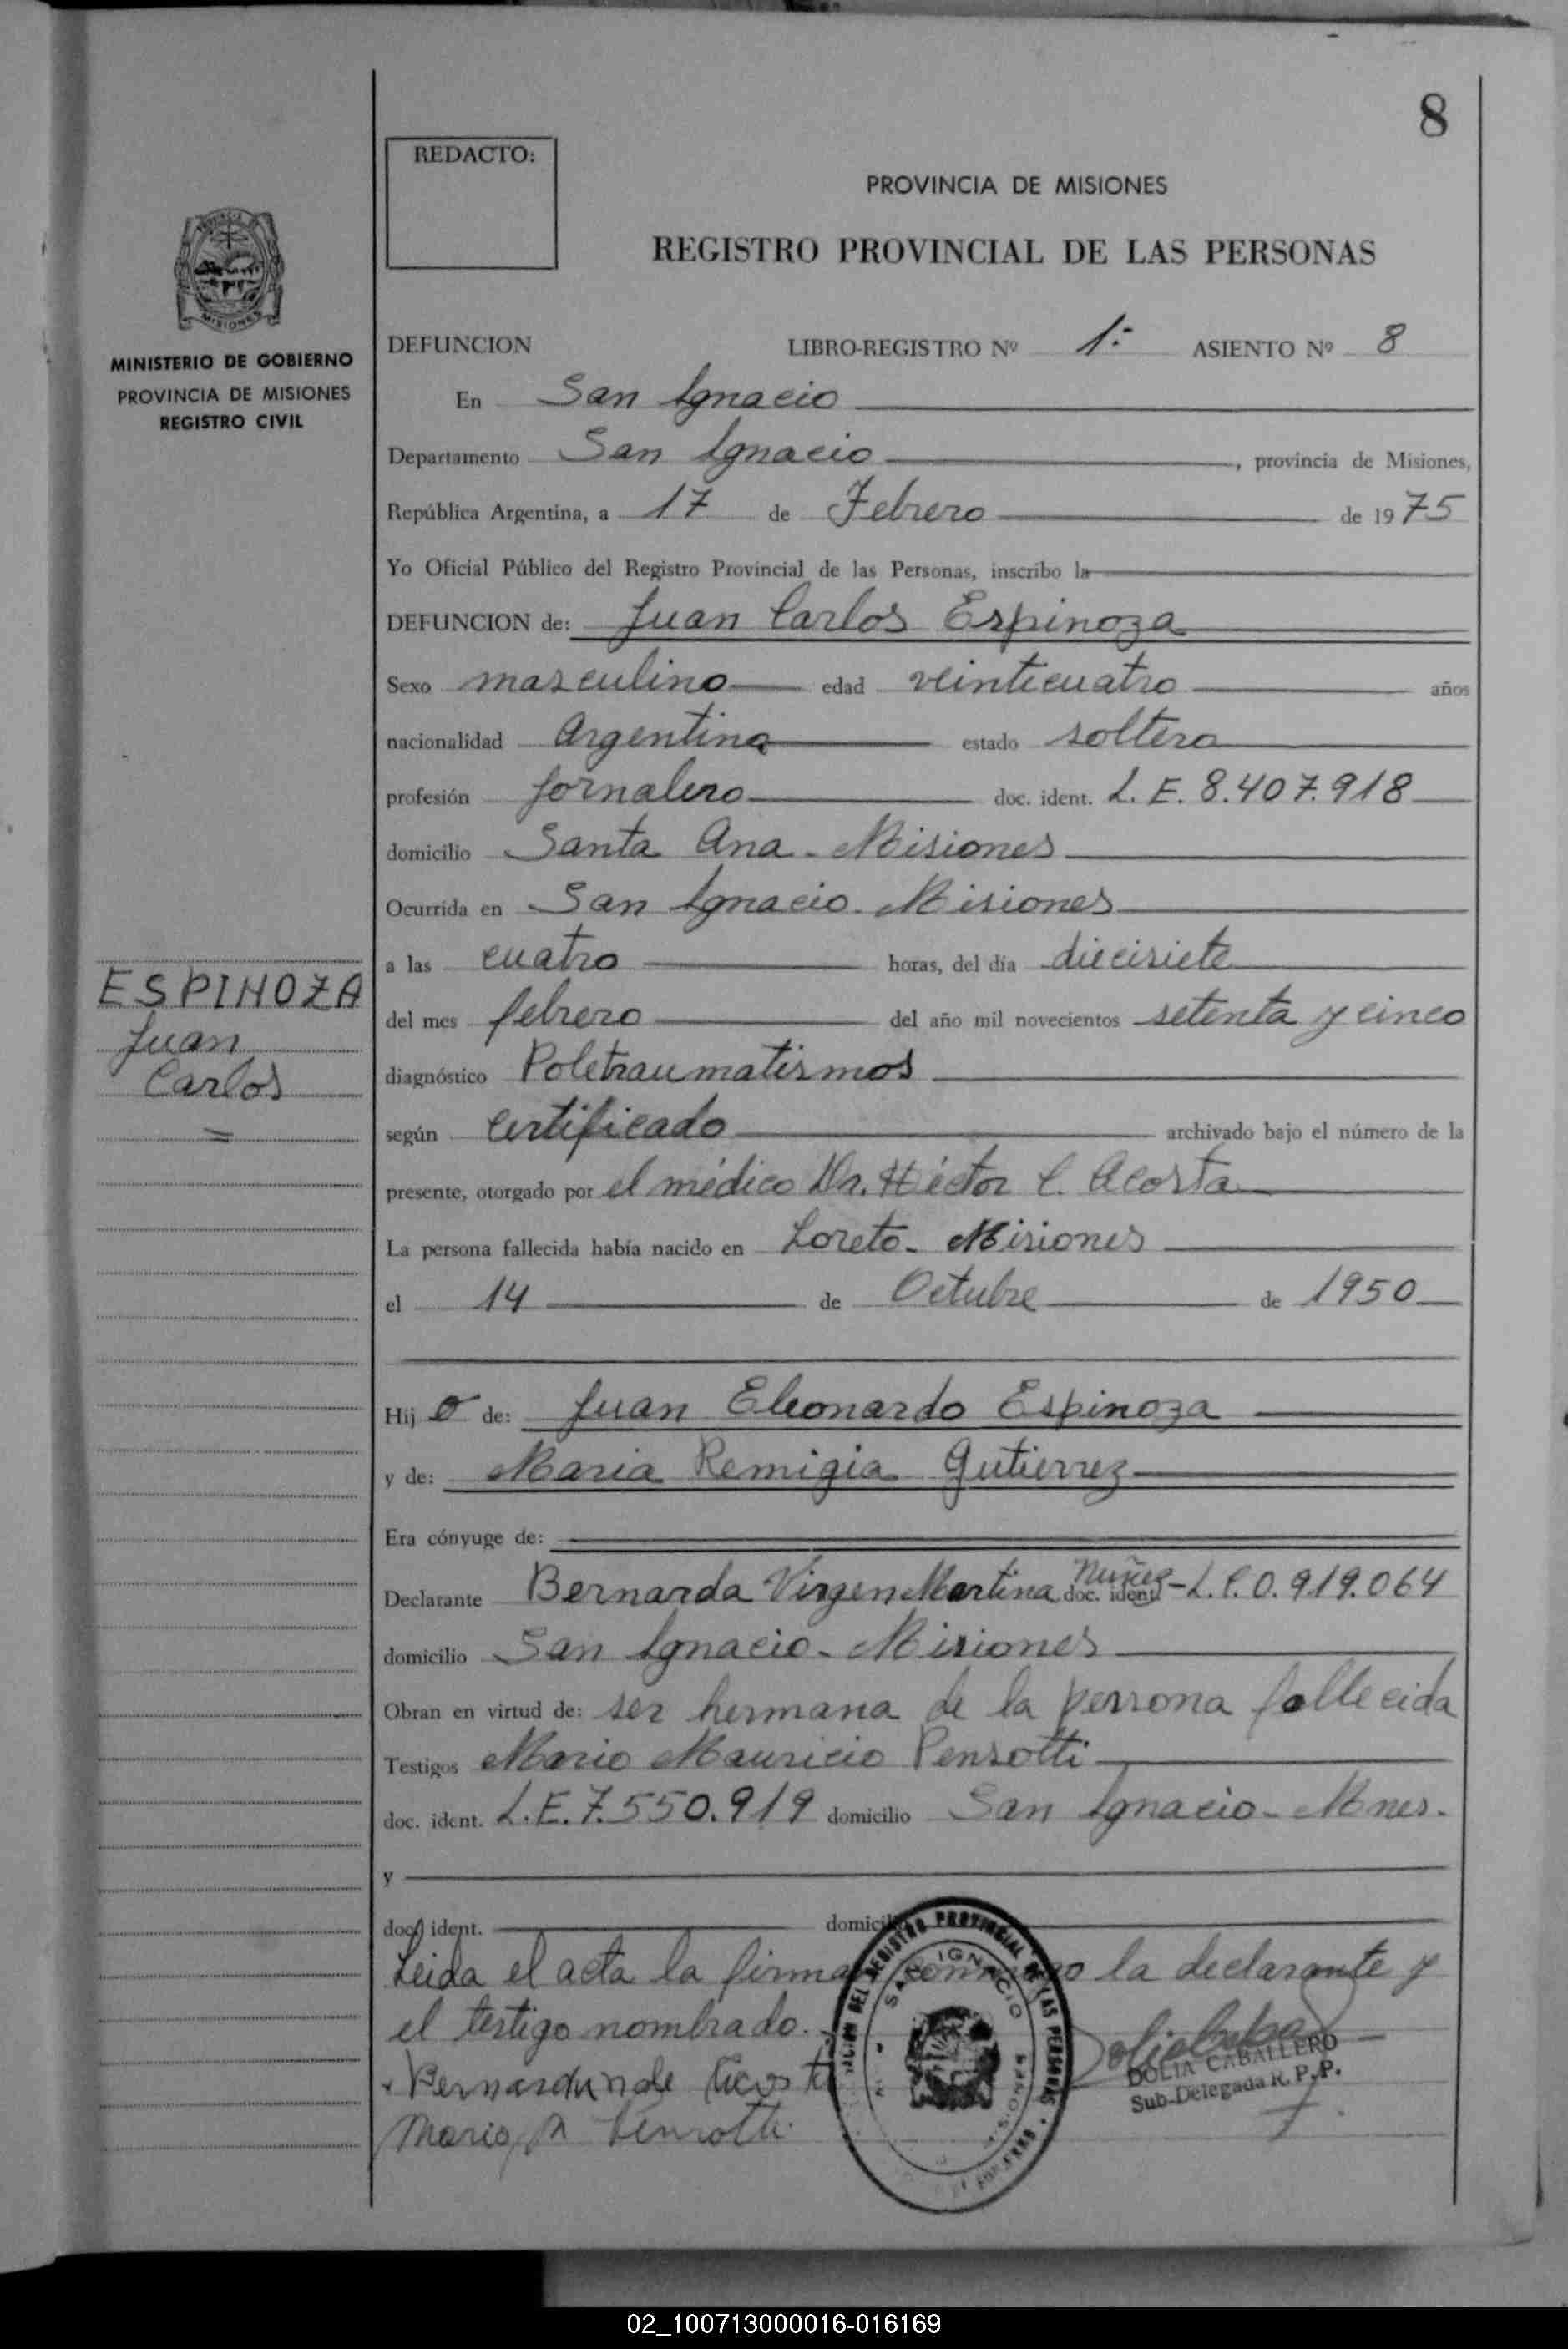 8
REDACTO:
PROVINCIA DE MISIONES
REGISTRO PROVINCIAL DE LAS PERSONAS
MISIONES
MINISTERIO DE GOBIERNO
PROVINCIA DE MISIONES
REGISTRO CIVIL
DEFUNCION LIBRO-REGISTRO Nº 1:- ASIENTO Nº 8
En San Ignacio
Departamento San Ignacio, provincia de Misiones,
República Argentina, a 17 de Febrero de 1975
Yo Oficial Público del Registro Provincial de las Personas, inscribo la
DEFUNCION de: Juan Carlos Espinoza
Sexo masculino edad veinticuatro años
nacionalidad Argentina estado soltero
profesión jornalero doc. ident. L.E. 8.407.918
domicilio Santa Ana - Misiones
Ocurrida en San Ignacio - Misiones
a las cuatro horas, del día diecisiete
ESPINOZA
Juan
Carlos
del mes febrero del año mil novecientos setenta y cinco
diagnóstico Poletraumatismos
según certificado archivado bajo el número de la
presente, otorgado por el médico Dr. Héctor C. Acosta
La persona fallecida había nacido en Loreto - Misiones
el 14 de Octubre de 1950
Hijo de: Juan Eleonardo Espinoza
y de: Maria Remigia Gutierrez
Era cónyuge de:
Declarante Bernarda Virgen Martina Nuñez doc. ident. - L.C. 0.919.064
domicilio San Ignacio - Misiones
Obran en virtud de: ser hermana de la persona fallecida
Testigos Mario Mauricio Pensotti
doc. ident. L.E. 7.550.919 domicilio San Ignacio - Mnes.
y
doc. ident. domicilio
Leida el acta la firma conmigo la declarante y
el testigo nombrado.
SAN IGNACIO
MISIONES
DOLIA CABALLERO
Sub-Delegada R. P. P.
Mario M Pensotti
02_100713000016-016169